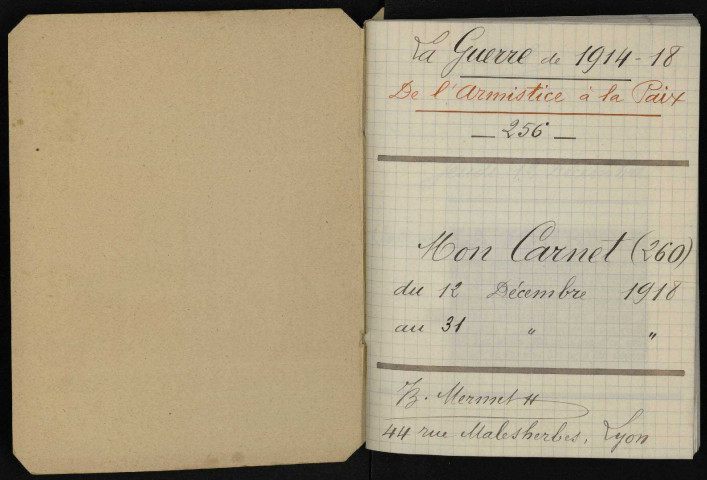 La Guerre de 1914-18
De l'Armistice à la Paix
— 256 —
Mon Carnet (260)
du 12 Décembre 1918
au 31 " "
B. Mermet
44 rue Malesherbes, Lyon